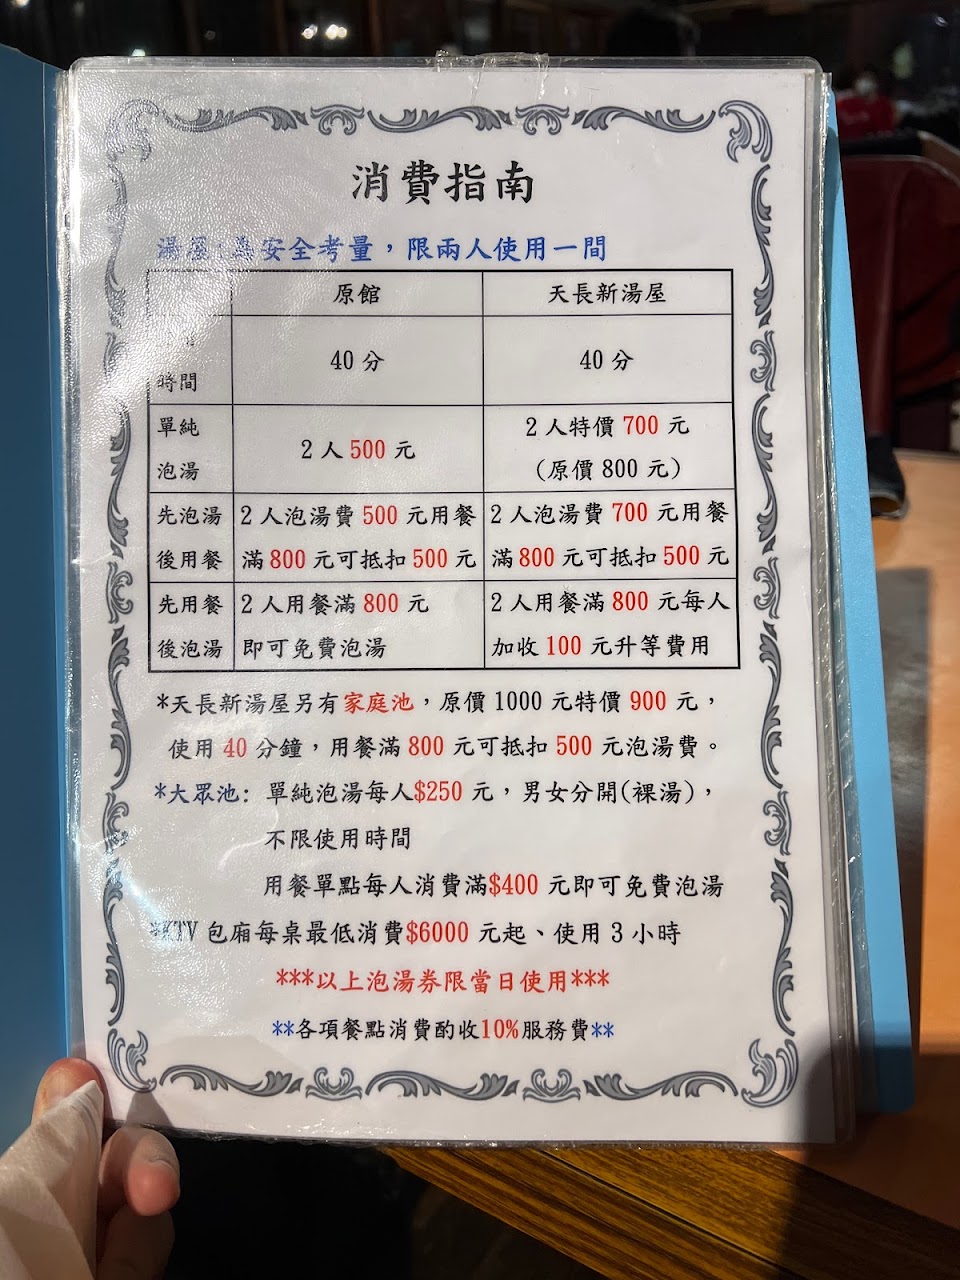 消費指南
湯屋:為安全考量，限兩人使用一間
原館 天長新湯屋
時間 40分 40分
單純泡湯 2人500元 2人特價700元
(原價800元)
先泡湯 2人泡湯費500元用餐 2人泡湯費700元用餐
後用餐 滿800元可抵扣500元 滿800元可抵扣500元
先用餐 2人用餐滿800元 2人用餐滿800元每人
後泡湯 即可免費泡湯 加收100元升等費用
*天長新湯屋另有家庭池，原價1000元特價900元，
使用40分鐘，用餐滿800元可抵扣500元泡湯費。
*大眾池: 單純泡湯每人$250元，男女分開(裸湯)，
不限使用時間
用餐單點每人消費滿$400元即可免費泡湯
*KTV包廂每桌最低消費$6000元起、使用3小時
***以上泡湯券限當日使用***
**各項餐點消費酌收10%服務費**